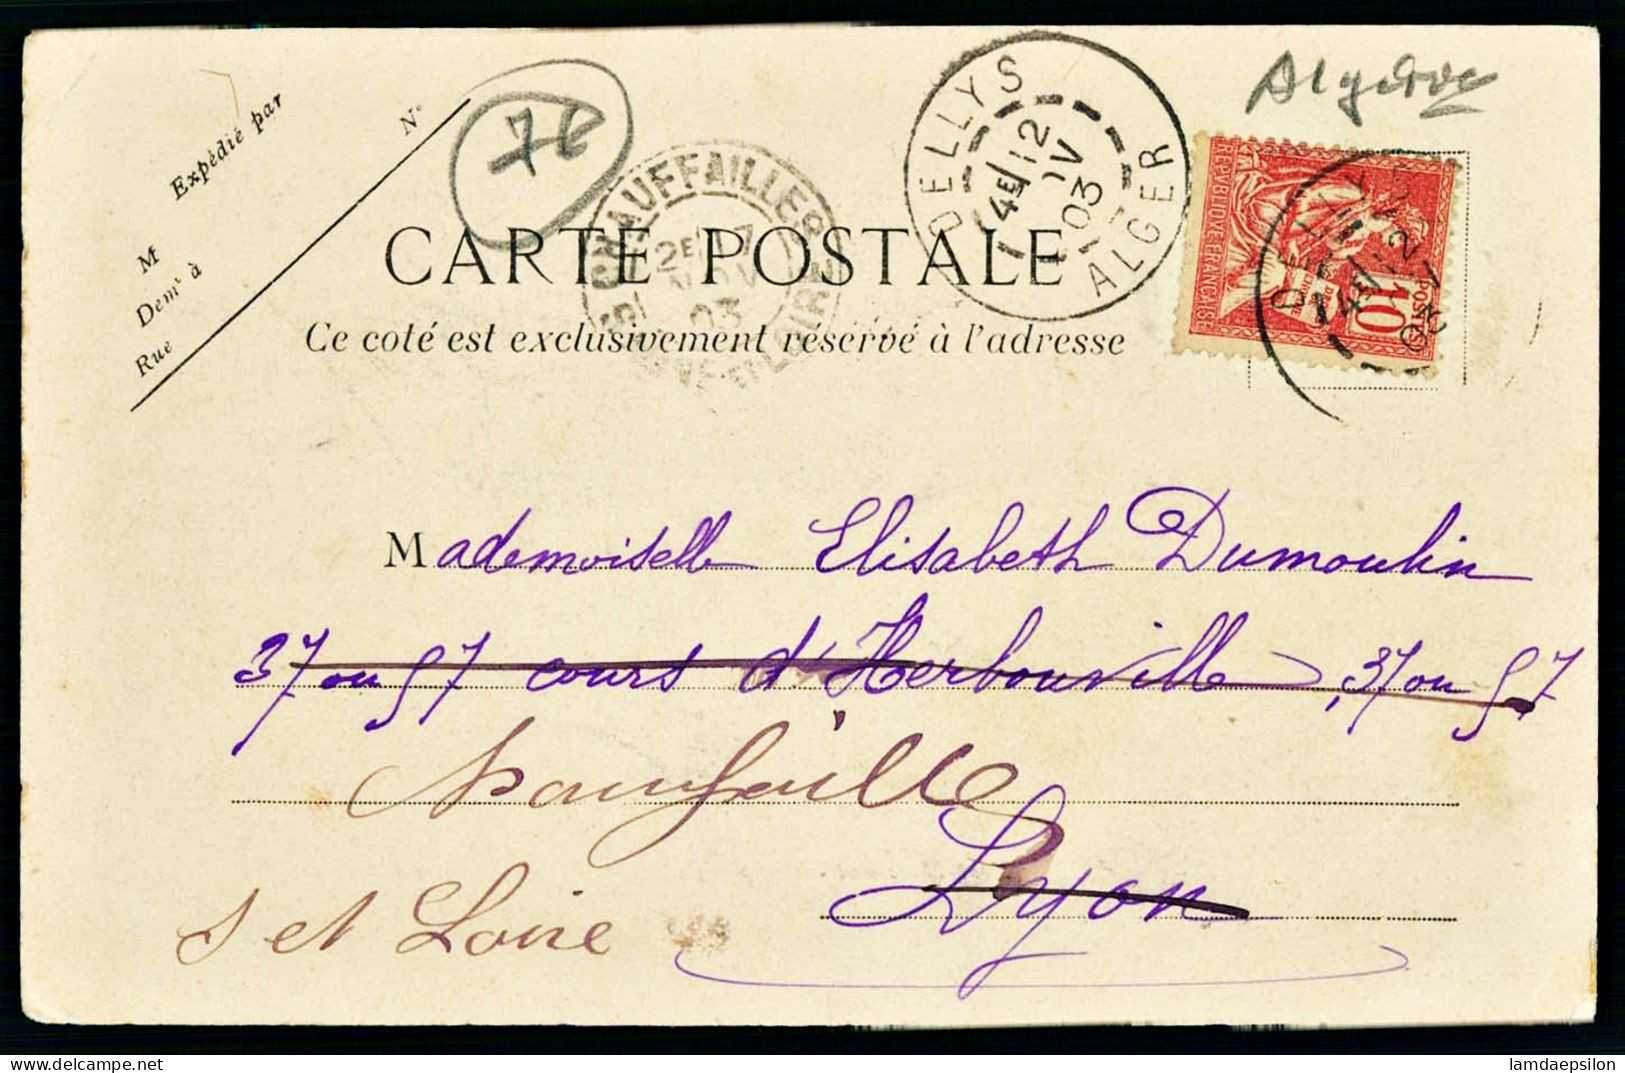 Expédié par
N°
M
Dem.t à
Rue
CHAUFFAILLES
2E 17
NOV
03
SAÔNE-ET-LOIRE
DELLYS
4E 12
NOV
03
ALGER
Algérie
REPUBLIQUE FRANÇAISE
10
POSTES
CARTE POSTALE
Ce coté est exclusivement réservé à l'adresse
Mademoiselle Elisabeth Dumoulin
37 ou 57 cours d'Herbouville, 37 ou 57
Chauffailles
Lyon
S et Loire
delcampe.net
lamdaepsilon